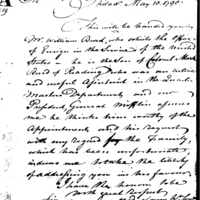 Sir
Philad<sup>a</sup> May 10. 1790.
This will be handed you by
Mr. William Bird, who solicits the office
of Ensign in the Service of the United
States — he is the Son of Colonel Mark
Bird of Reading who was an active
and useful Assistant in the Quarter
Master Department, and our
President, General Mifflin assures
me he thinks him worthy of the
Appointment, and this Request
with my regard for the Family,
which has been unfortunate
induces me to take the liberty
of addressing you in his favour,
I have the honor to be
with great Respect
Sir